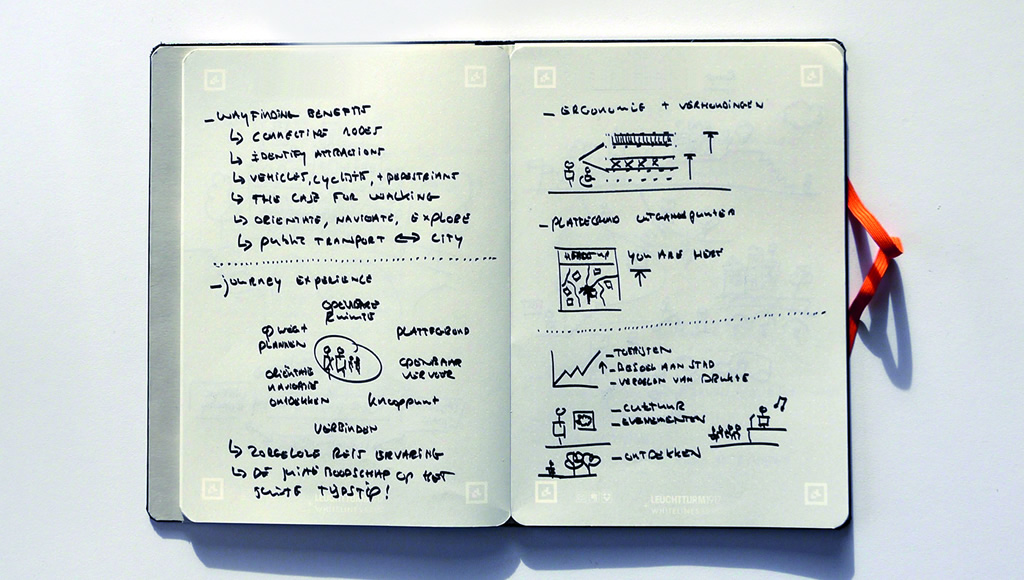 - WAYFINDING BENEFITS
↳ CONNECTING NODES
↳ IDENTIFY ATTRACTIONS
↳ VEHICLES, CYCLISTS, + PEDESTRIANS
↳ THE CASE FOR WALKING
↳ ORIENTATE, NAVIGATE, EXPLORE
↳ PUBLIC TRANSPORT ↔ CITY
- JOURNEY EXPERIENCE
OPENBARE
RUIMTE
OP WEG +
PLANNEN
PLATTEGROND
ORIËNTATIE
NAVIGATIE
ONTDEKKEN
OPENBAAR
VERVOER
KNOOPPUNT
VERBINDEN
↳ ZORGELOZE REIS ERVARING
↳ DE JUISTE BOODSCHAP OP HET
JUISTE TIJDSTIP!
- ERGONOMIE + VERHOUDINGEN
- PLATTEGROND UITGANGSPUNTEN
HEADS UP
YOU ARE HERE
- TOERISTEN
- BEZOEK AAN STAD
- VERDELEN VAN DRUKTE
- CULTUUR
- EVENEMENTEN
- ONTDEKKEN
LEUCHTTURM1917
WHITELINES